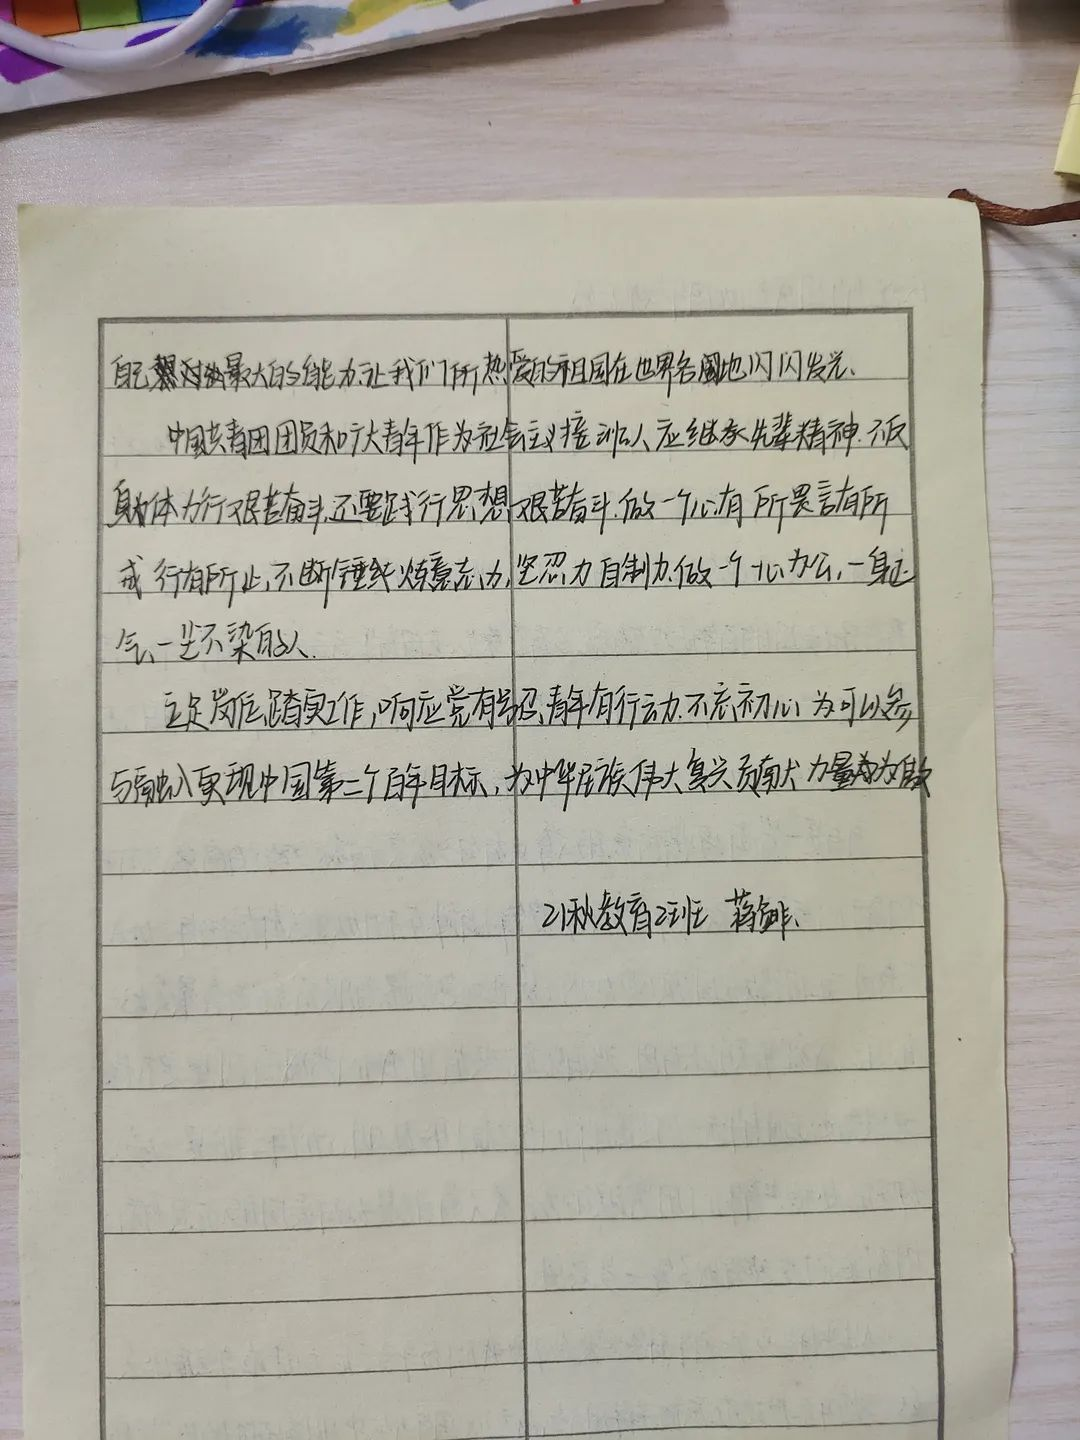 自己最大的能力,让我们所热爱的祖国在世界各地闪闪发光、
中国共青团团员和广大青年作为社会主义接班人应继承先辈精神.不仅
身体力行艰苦奋斗.还要践行思想艰苦奋斗.做一个心有所畏言有所
戒行有所止,不断锤炼意志力,坚忍力自制力.做一个一心办公,一身正
气、一尘不染的人.
立足岗位,踏实工作,响应党有号召、青年有行动.不忘初心为可以参
与融入实现中国第二个百年目标,为中华民族伟大复兴贡献力量为傲
21秋教育2班 蒋